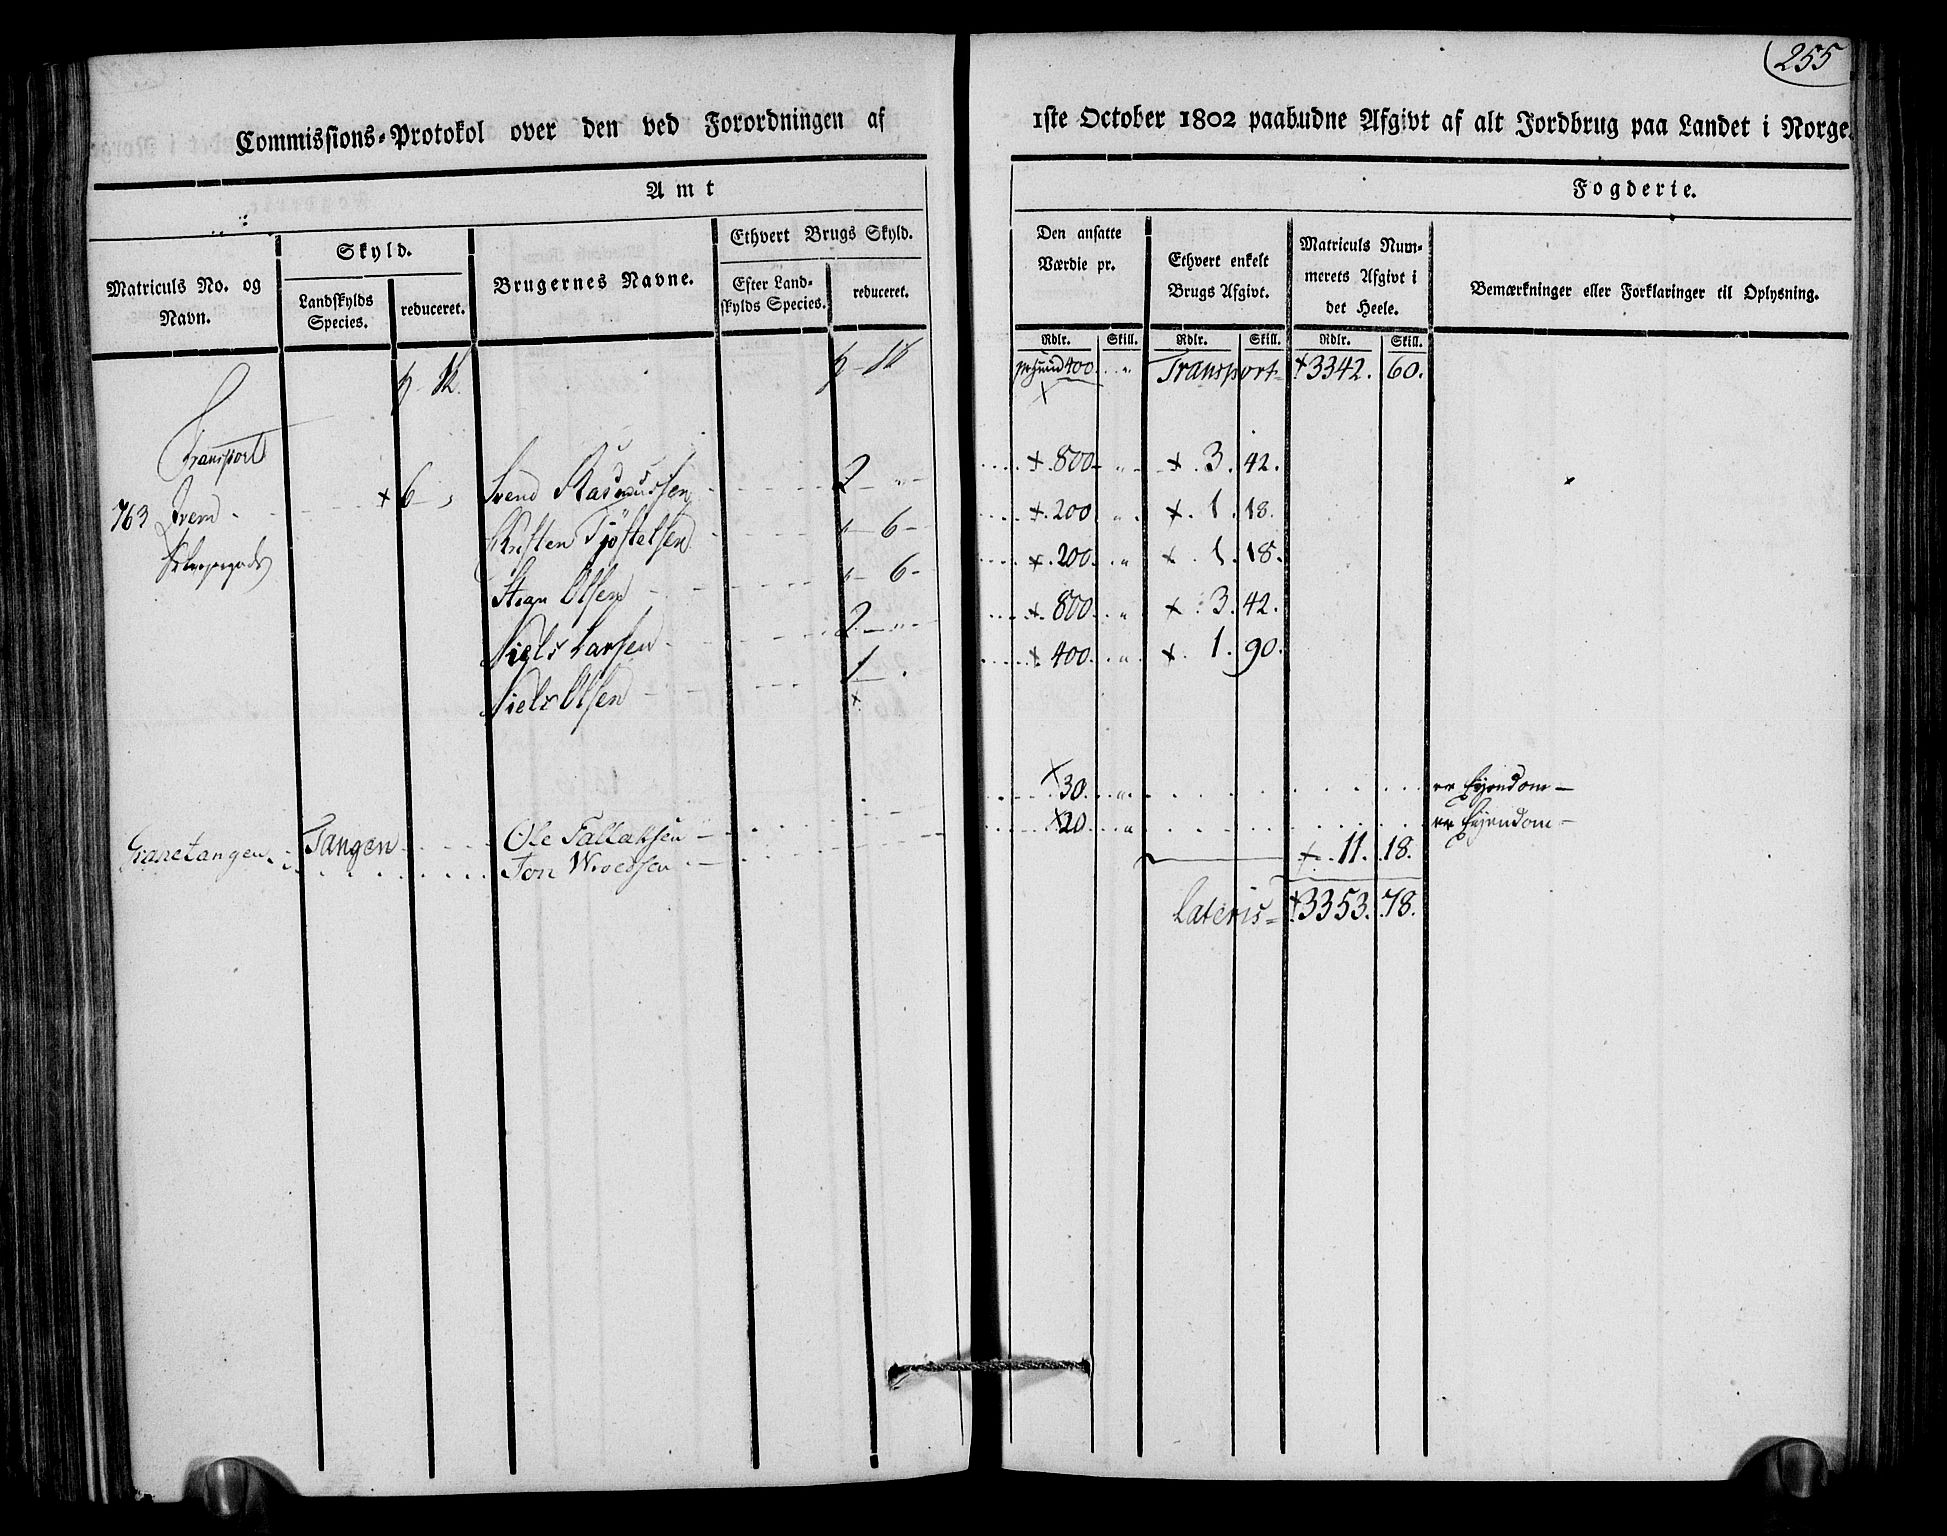 255
Commissions-Protokol over den ved Forordningen af 1ste October 1802 paabudne Afgivt af alt Jordbrug paa Landet i Norge.
Amt
Fogderie.
Matriculs No. og Navn.
Skyld.
Landskylds Species.
reduceret.
Brugernes Navne.
Ethvert Brugs Skyld.
Efter Landskylds Species.
reduceret.
Den ansatte Værdie pr.
Rdlr. Skill.
Ethvert enkelt Brugs Afgivt.
Rdlr. Skill.
Matriculs Nummerets Afgivt i det Heele.
Rdlr. Skill.
Bemærkninger eller Forklaringer til Oplysning.
400. " Transport 3342. 60.
Transport
763 6 Svend Rasmussen 2 " 800 " 3. 42.
Tjøstelsen " 6 200. " 1. 18.
Olsen " 6 200. " 1. 18.
Niels Larsen 2 " 800. " 3. 42.
Niels Olsen 1 400. " 1. 90.
Granetangen Tangen Ole Fallaksen 30. " er Eyendom
Jon Wroldsen 20 " er Eyendom
11. 18.
Lateris 3353. 78.